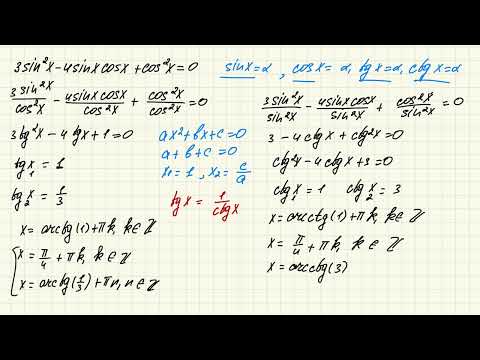 3sin²x-4sinxcosx+cos²x=0
sinx=a, cosx=a, tgx=a, ctgx=a
3sin²x/cos²x - 4sinxcosx/cos²x + cos²x/cos²x =0
3tg²x-4tgx+1=0
tgx₁=1
tgx₂=1/3
x=arctg(1)+πk, k∈ℤ
x=π/4+πk, k∈ℤ
x=arctg(1/3)+πn, n∈ℤ
ax²+bx+c=0
a+b+c=0
x₁=1, x₂=c/a
tgx=1/ctgx
3sin²x/sin²x - 4sinxcosx/sin²x + cos²x/sin²x =0
3-4ctgx+ctg²x=0
ctg²x-4ctgx+3=0
ctgx₁=1 ctgx₂=3
x=arcctg(1)+πk, k∈ℤ
x=π/4+πk, k∈ℤ
x=arcctg(3)